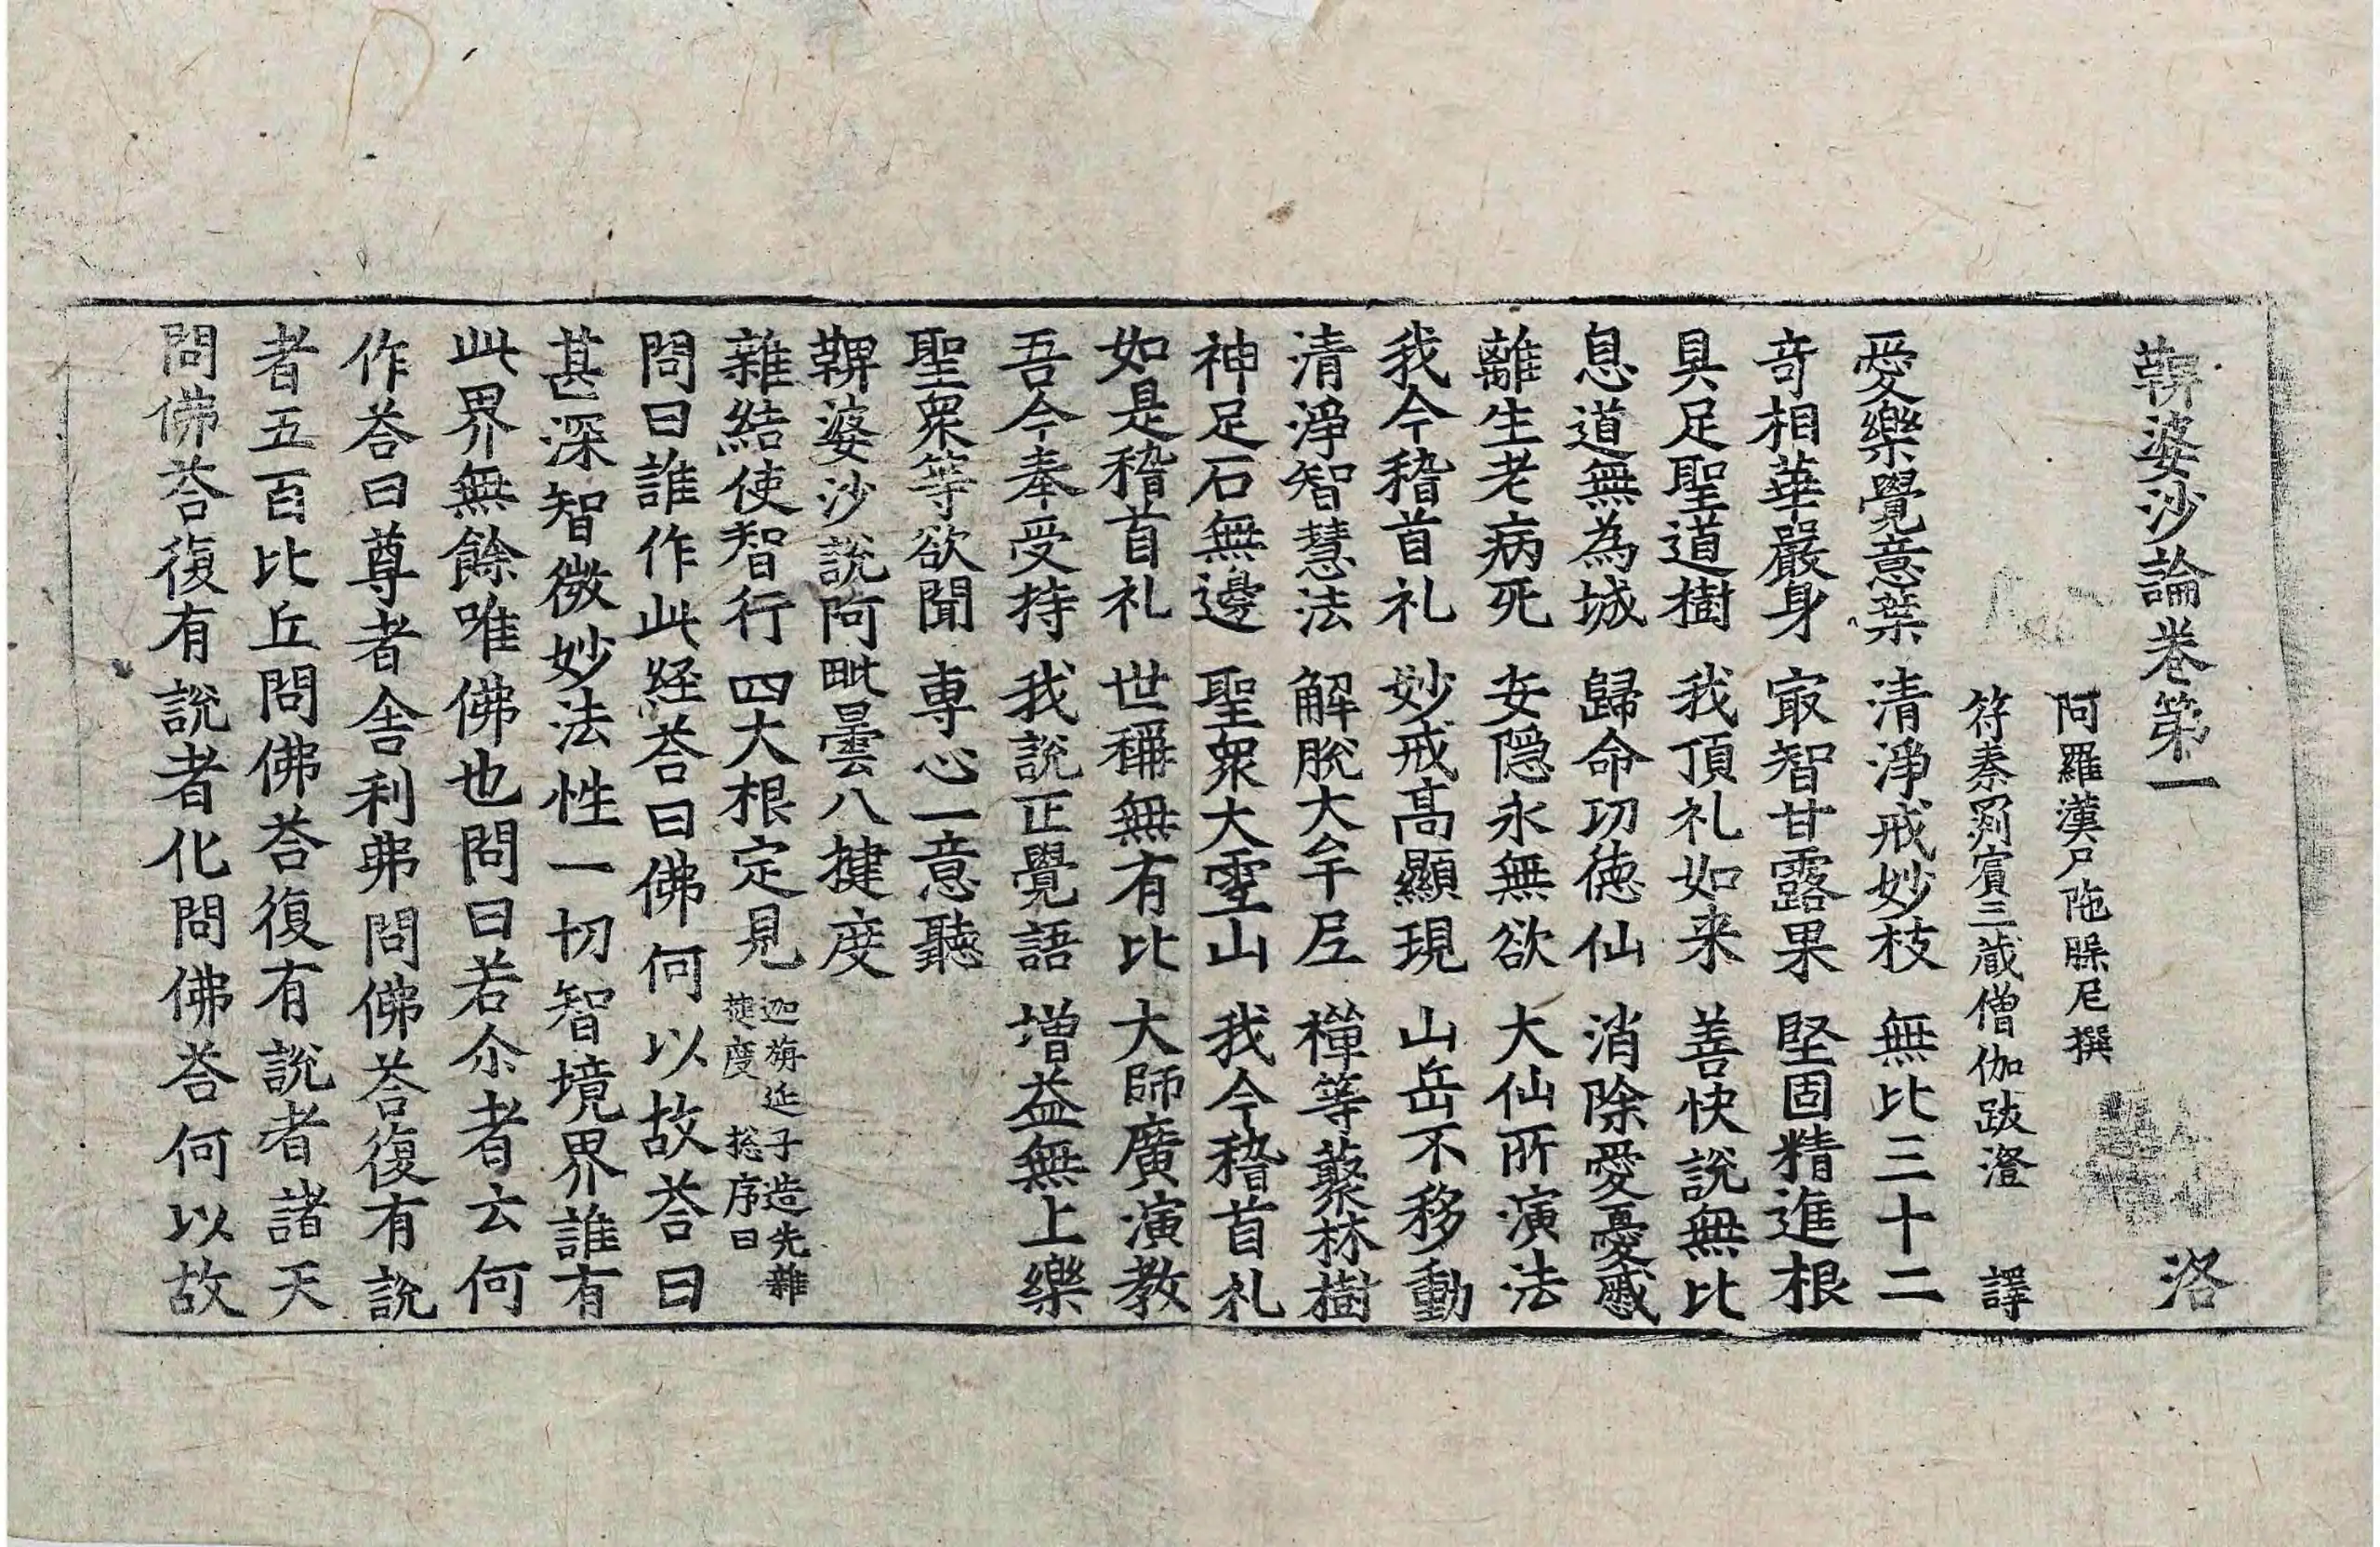 鞞婆沙論卷第一 洛
阿羅漢尸陁槃尼撰
符秦罽賓三藏僧伽跋澄 譯
愛樂覺意葉 清淨戒妙枝 無比三十二
竒相華嚴身 㝡智甘露果 堅固精進根
具足聖道樹 我頂礼如来 善快說無比
息道無為城 歸命功徳仙 消除愛憂慼
離生老病死 安隠永無欲 大仙所演法
我今稽首礼 妙戒髙顯現 山岳不移動
清淨智慧法 解脫大牟尼 禪等藂林樹
神足石無邊 聖衆大雪山 我今稽首礼
如是稽首礼 世稱無有比 大師廣演教
吾今奉受持 我說正覺語 增益無上樂
聖衆等欲聞 專心一意聽
鞞婆沙說阿毗曇八揵度
雜結使智行 四大根定見 迦旃延子造先雜揵度 捴序曰
問曰誰作此経荅曰佛何以故荅曰
甚深智微妙法性一切智境界誰有
此界無餘唯佛也問曰若尒者云何
作荅曰尊者舎利弗問佛荅復有說
者五百比丘問佛荅復有說者諸天
問佛荅復有說者化問佛荅何以故